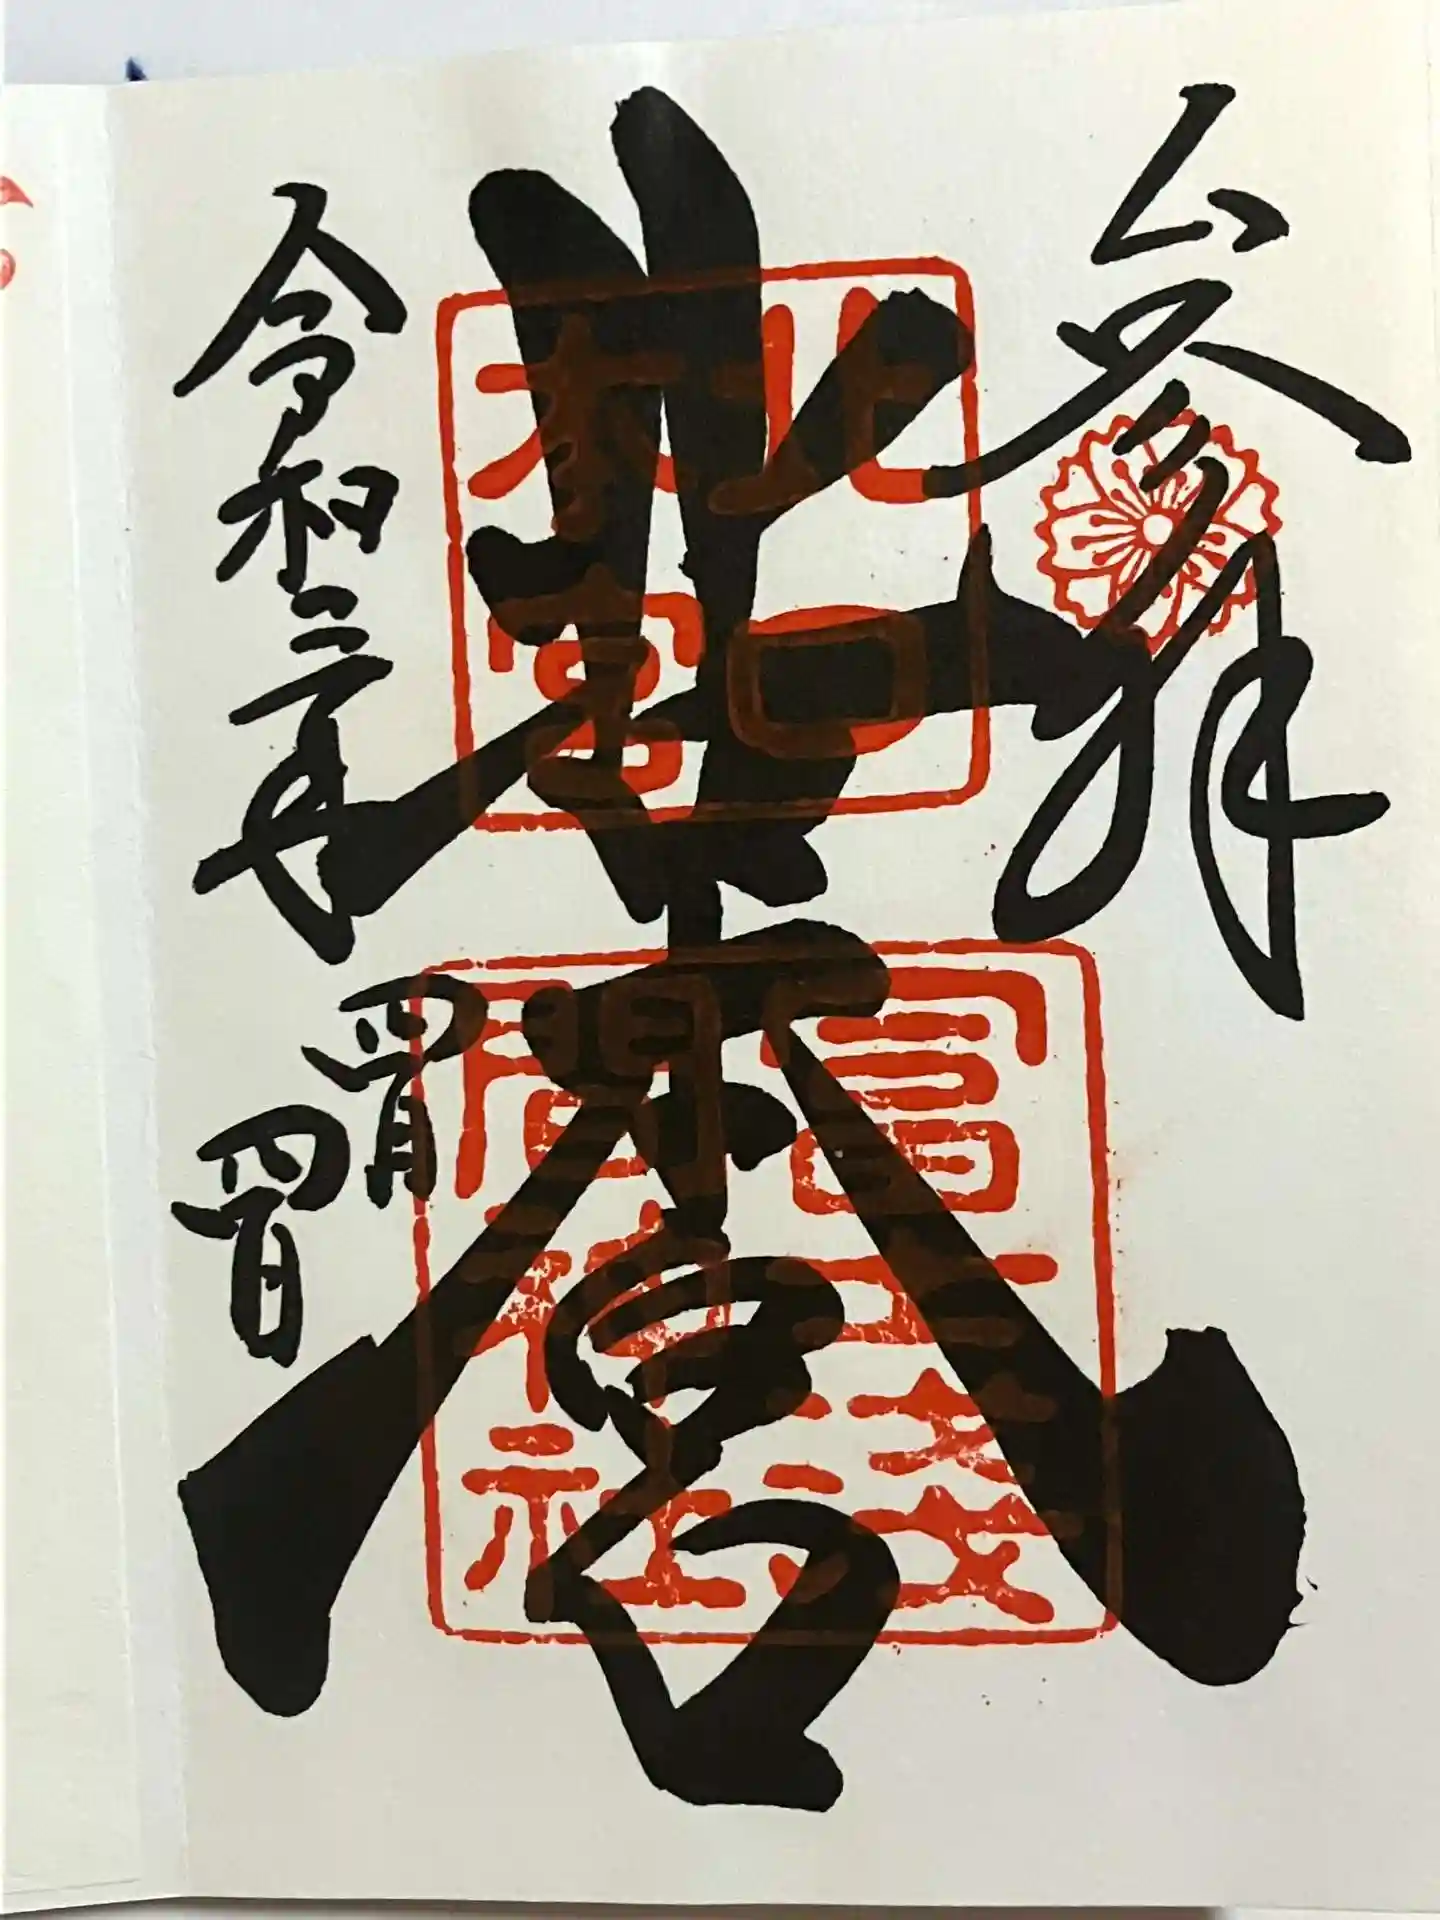 奉拝
北口本宮
令和二年
四月
四日
北口
本宮
冨士淺
間神社